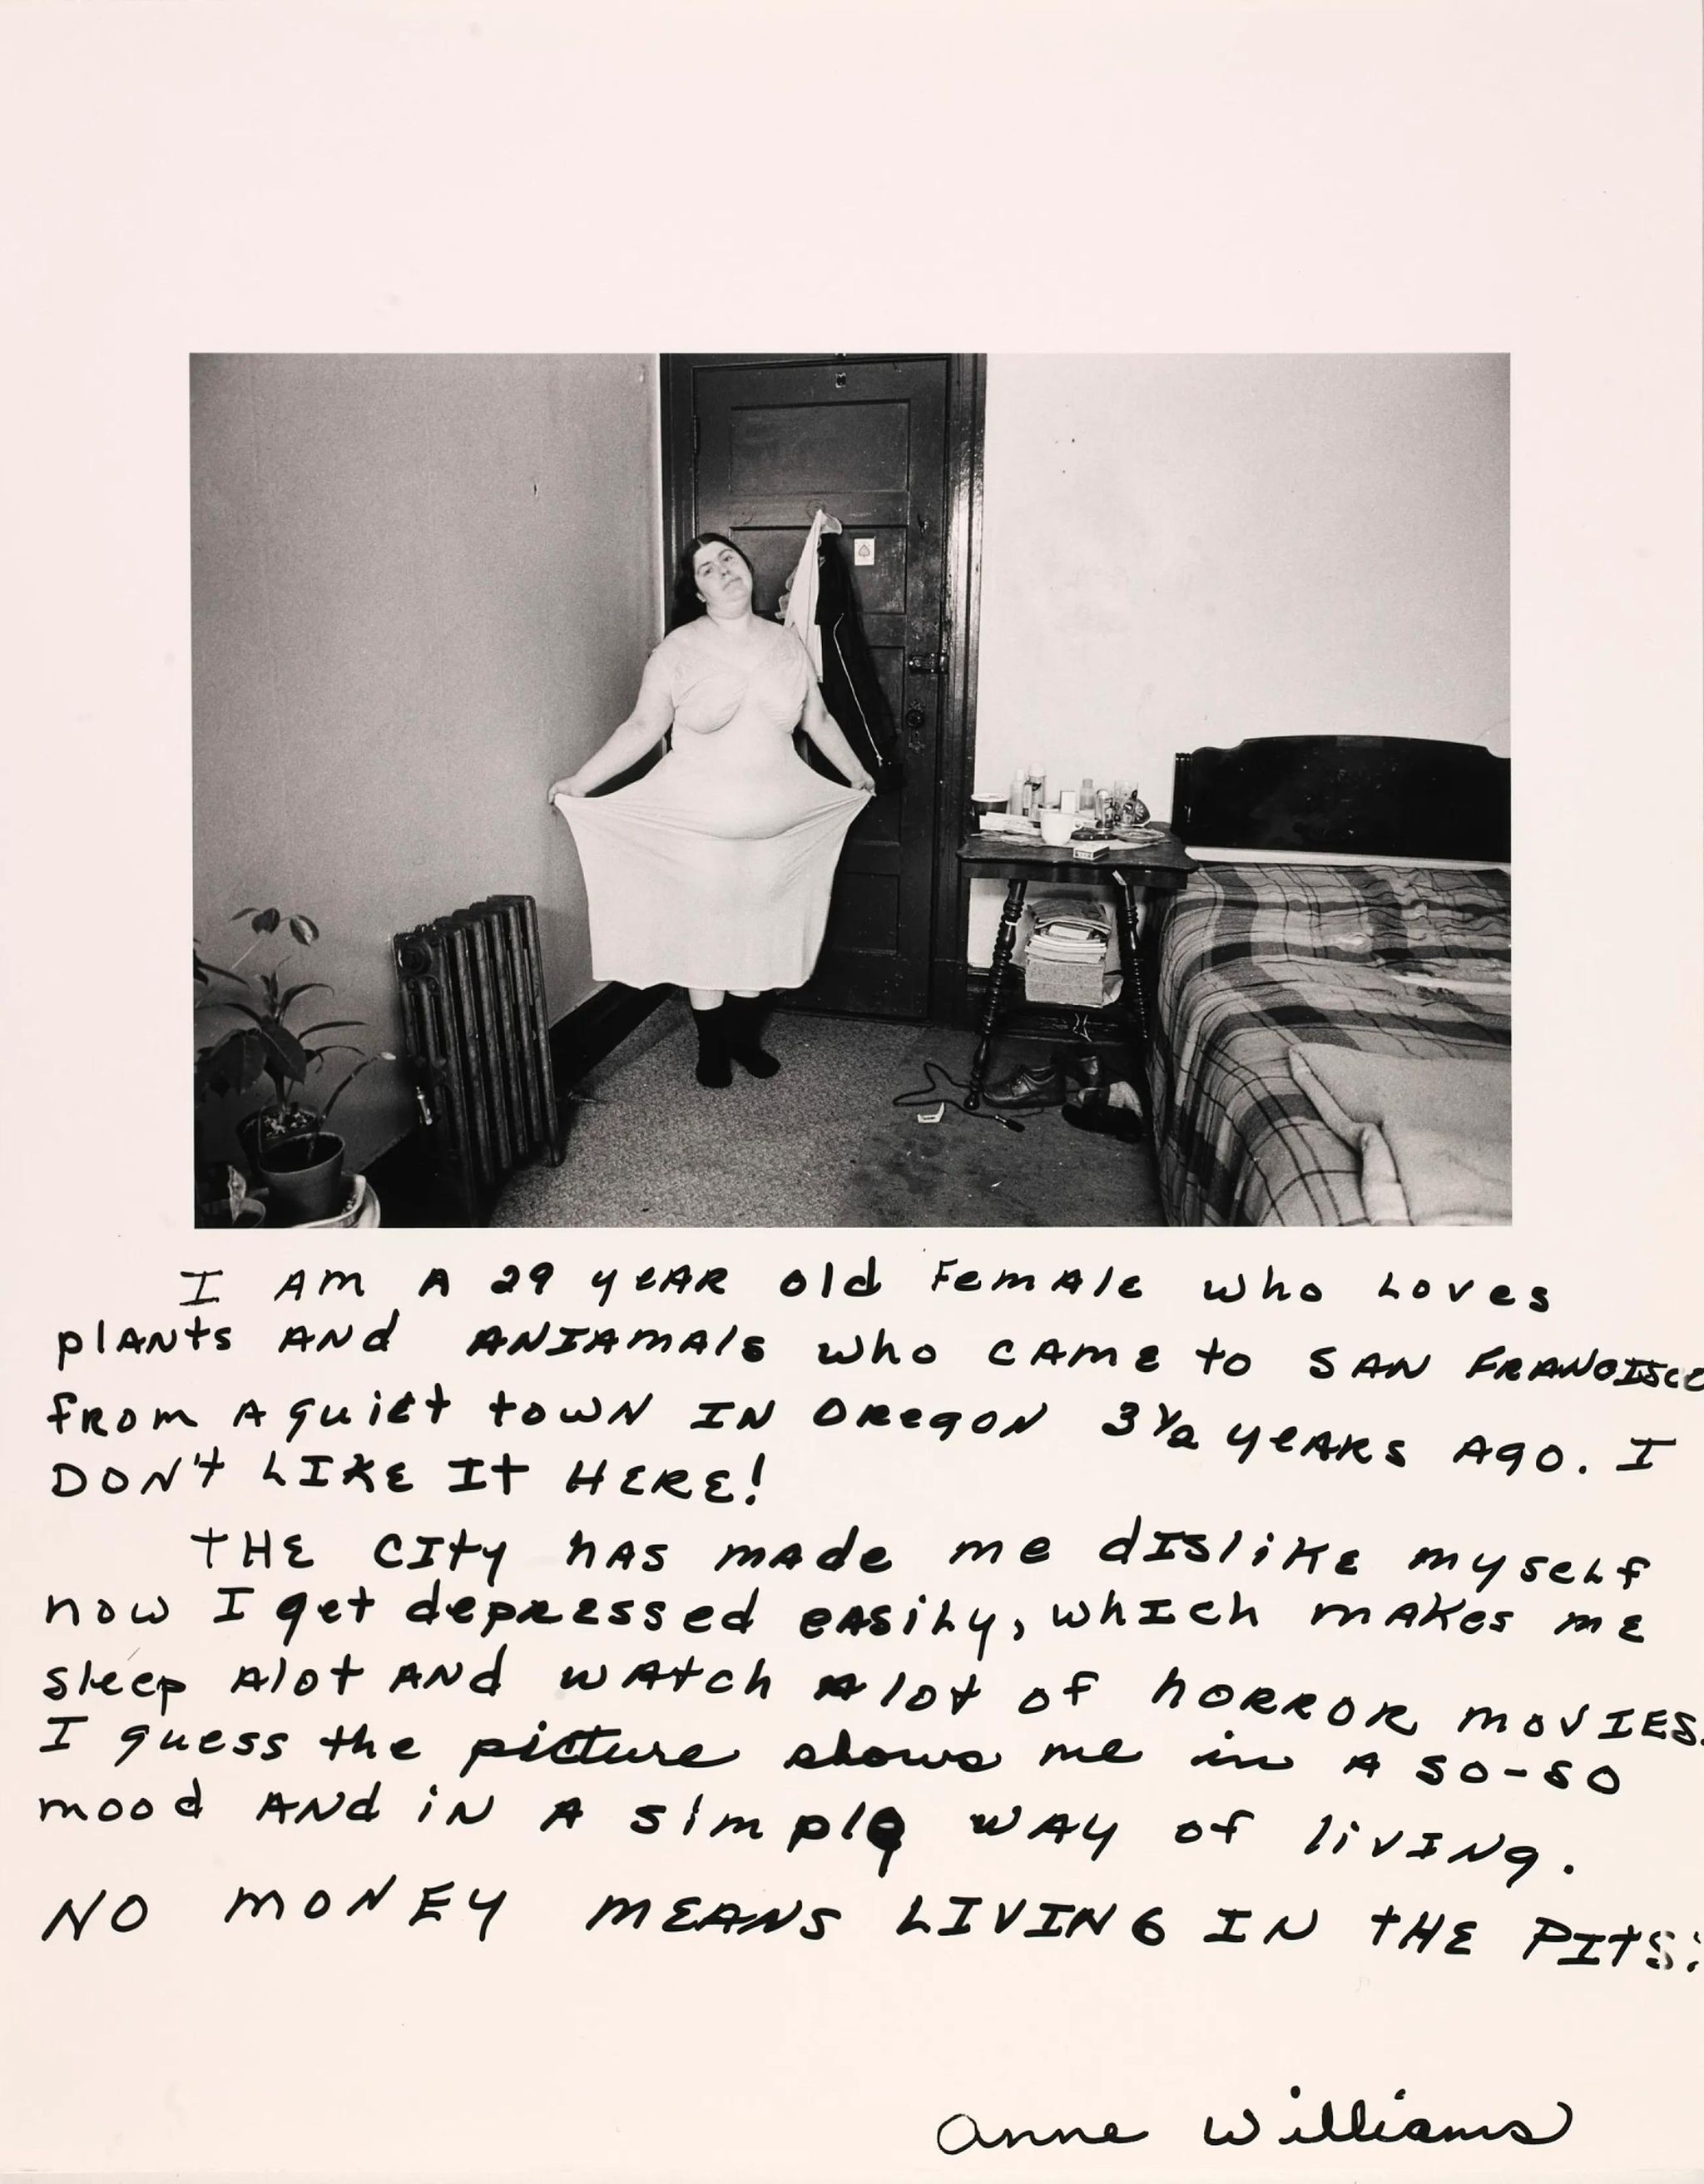 I AM A 29 yeAR old Female who Loves
plANts ANd ANIAMAls who CAME to SAN FRANCISCO
fRom A quiet towN IN OReGON 3½ yeARs AGO. I
DON't LIKE It HERE!
tHE CIty hAS mAde me dISliKE mysELf
now I get depREssed eASiLy, whIch mAKes mE
sleep Alot ANd wAtch A lot of hoRROR movIES.
I guess the picture shows me in A so-so
mood ANd iN A simple wAy of livINg.
NO MONEY MEANS LIVING IN tHE PItS!
Anne Williams